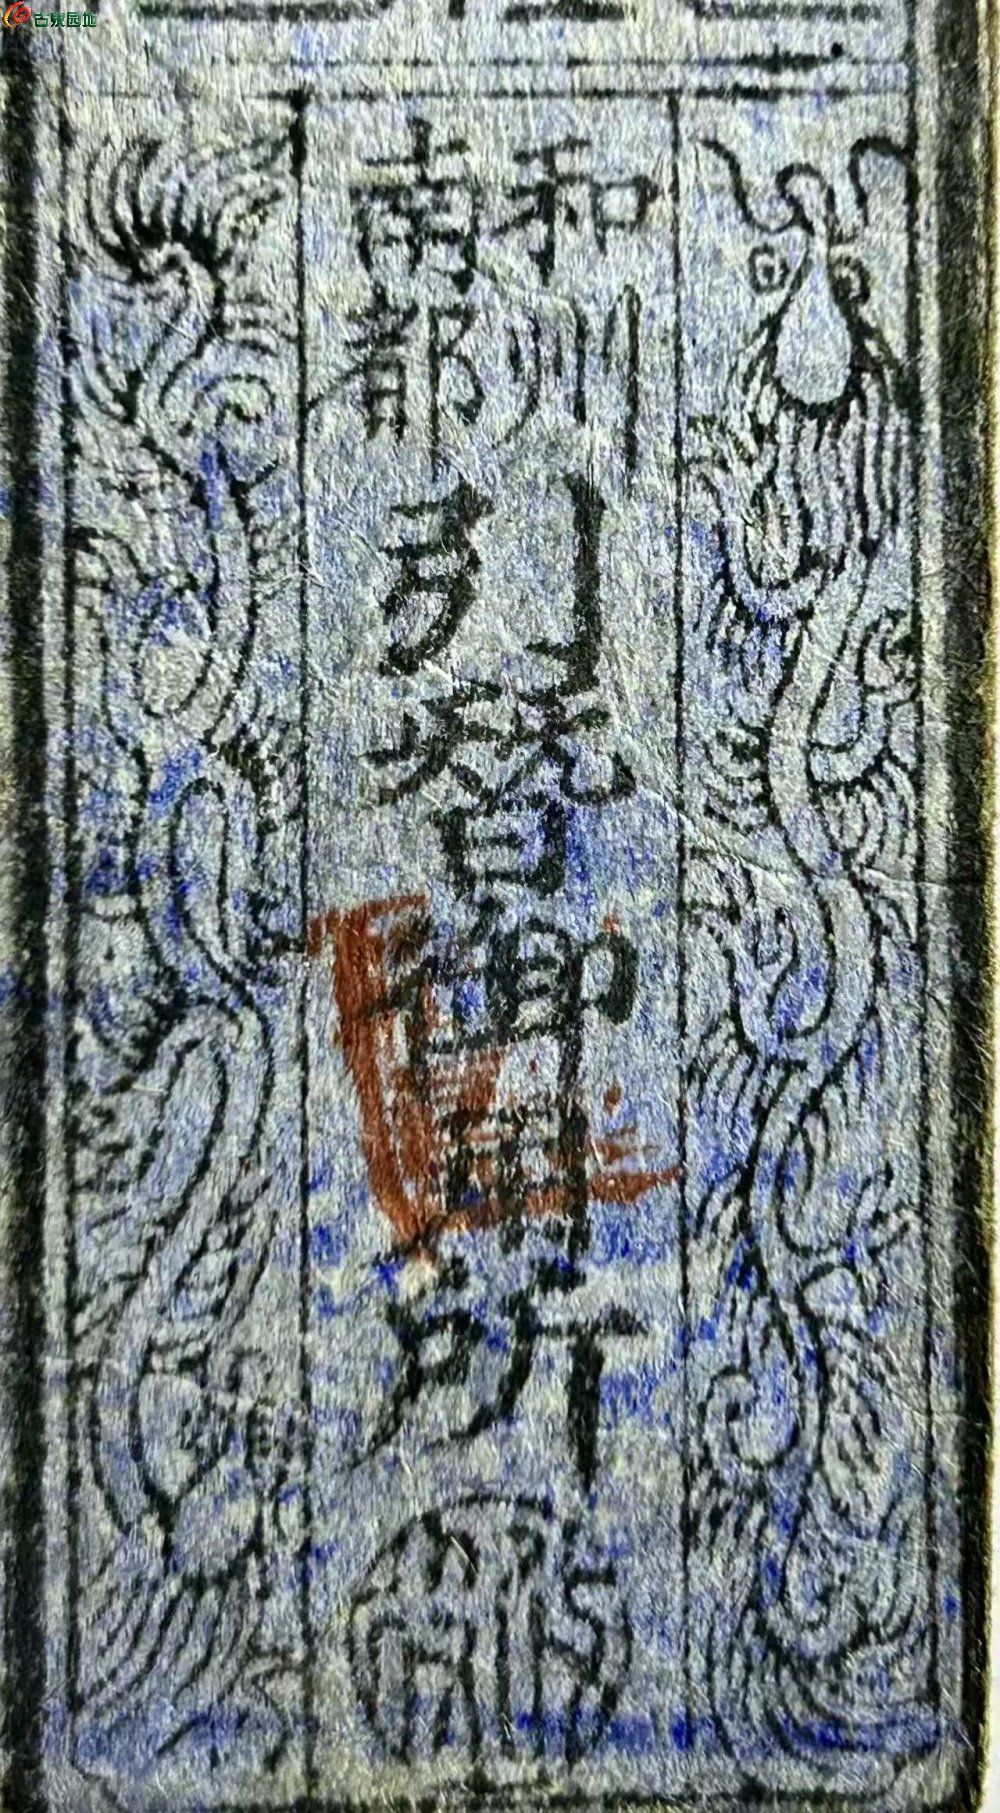 古泉园地
和州
南都
引替御 所